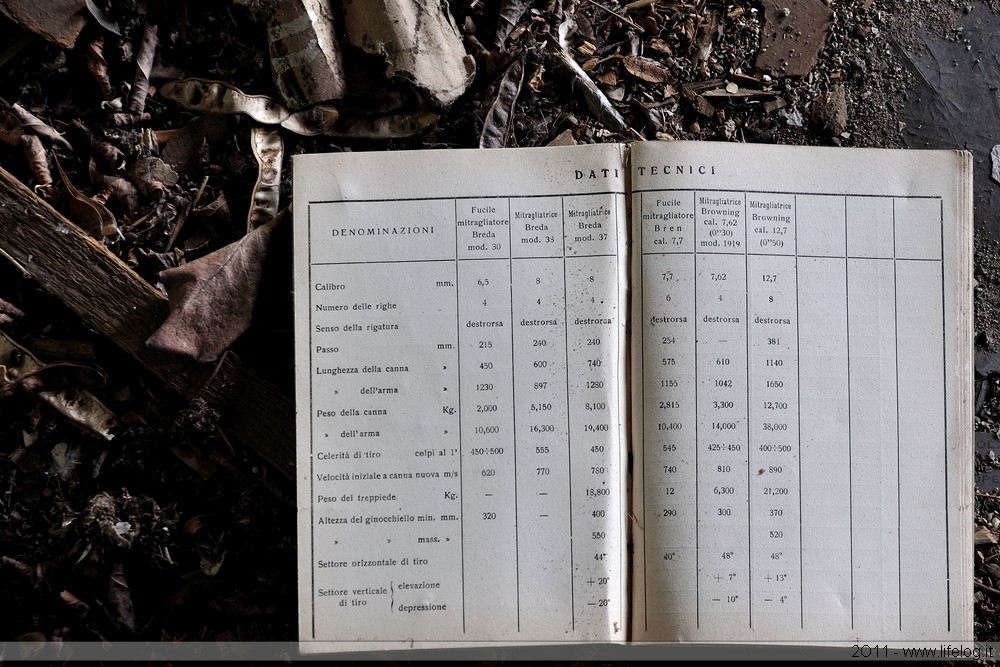 DATI TECNICI
DENOMINAZIONI
Fucile
mitragliatore
Breda
mod. 30
Mitragliatrice
Breda
mod. 38
Mitragliatrice
Breda
mod. 37
Fucile
mitragliatore
Bren
cal. 7,7
Mitragliatrice
Browning
cal. 7,62
(0"30)
mod. 1919
Mitragliatrice
Browning
cal. 12,7
(0"50)
Calibro mm. 6,5 8 8 7,7 7,62 12,7
Numero delle righe 4 4 4 6 4 8
Senso della rigatura destrorsa destrorsa destrorsa destrorsa destrorsa destrorsa
Passo mm. 215 240 240 254 — 381
Lunghezza della canna » 450 600 740 575 610 1140
» dell'arma » 1230 897 1280 1155 1042 1650
Peso della canna Kg. 2,000 5,150 8,100 2,815 3,300 12,700
» dell'arma » 10,600 16,300 19,400 10,400 14,000 38,000
Celerità di tiro colpi al 1' 450÷500 555 450 545 425÷450 400÷500
Velocità iniziale a canna nuova m/s 620 770 780 740 810 890
Peso del treppiede Kg. — — 18,800 12 6,300 21,200
Altezza del ginocchiello min. mm. 320 — 400 290 300 370
» » mass. » 550 520
Settore orizzontale di tiro 44° 40° 48° 48°
Settore verticale di tiro { elevazione + 20° + 7° + 13°
depressione — 20° — 10° — 4°
2011 - www.lifelog.it